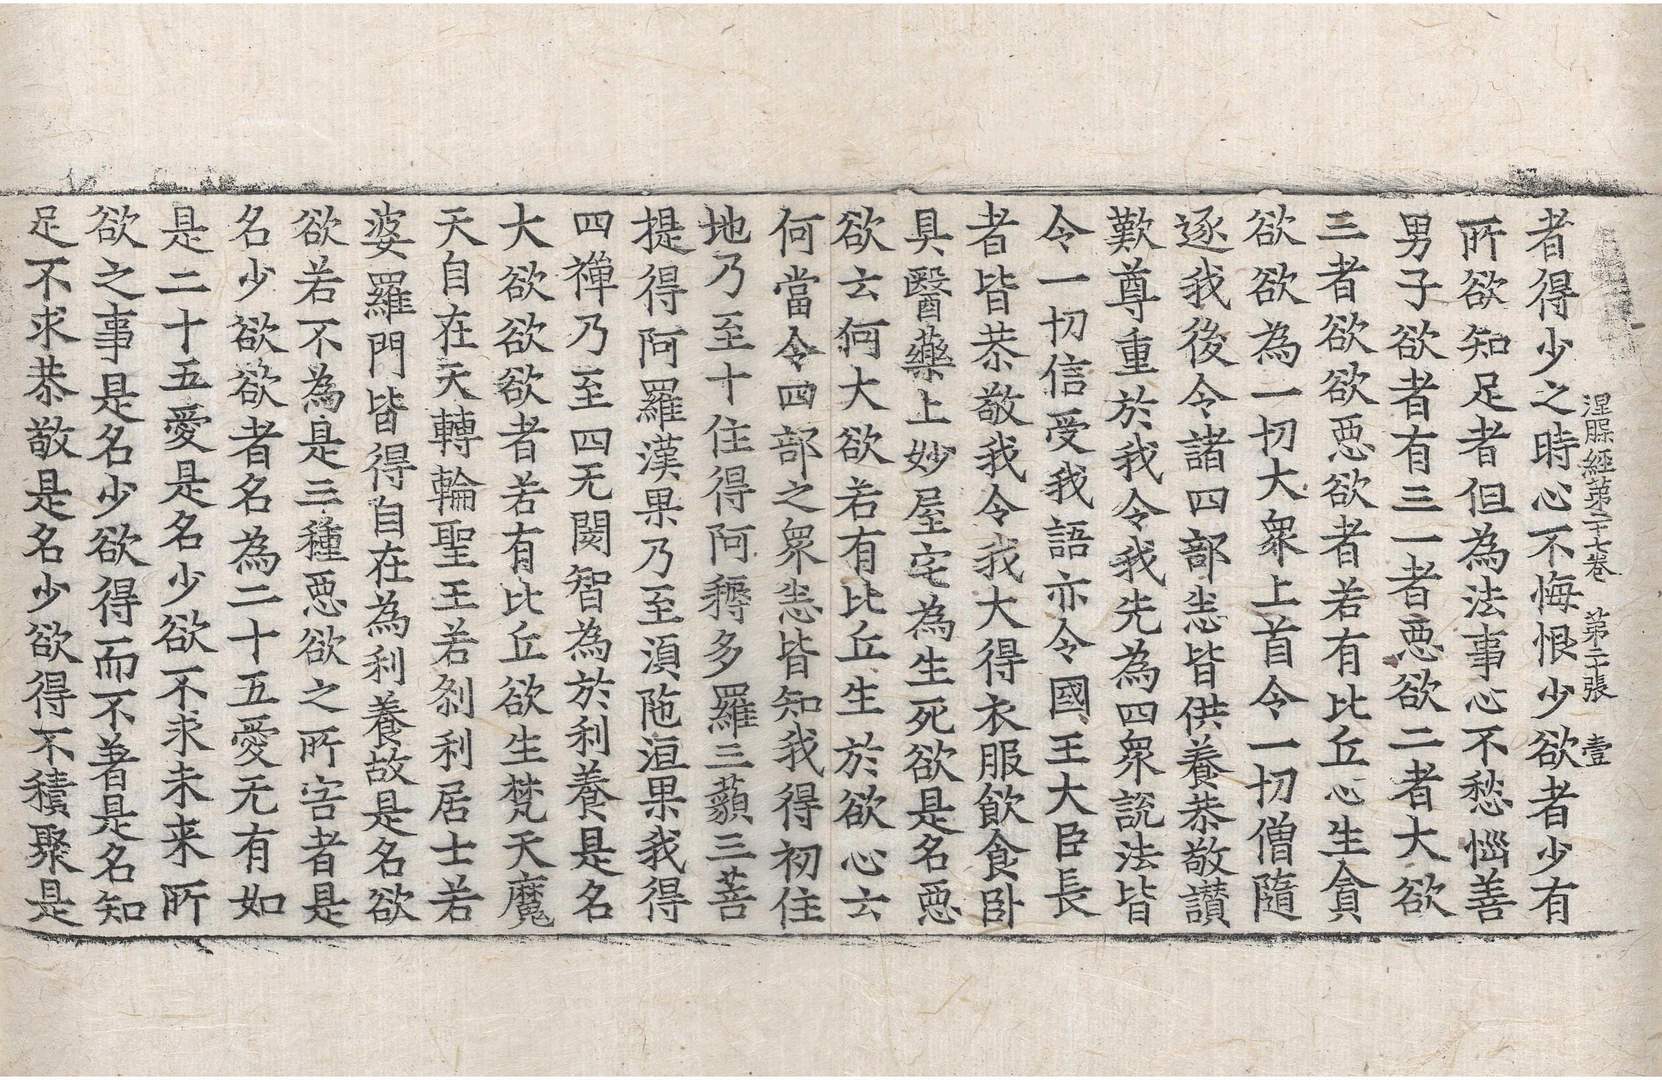 涅槃經第二十七卷　第二十張　壹
者得少之時心不悔恨少欲者少有
所欲知足者但為法事心不愁惱善
男子欲者有三一者惡欲二者大欲
三者欲欲惡欲者若有比丘心生貪
欲欲為一切大衆上首令一切僧隨
逐我後令諸四部悉皆供養恭敬讃
歎尊重於我令我先為四衆說法皆
令一切信受我語亦令國王大臣長
者皆恭敬我令我大得衣服飲食卧
具醫藥上妙屋宅為生死欲是名惡
欲云何大欲若有比丘生於欲心云
何當令四部之衆悉皆知我得初住
地乃至十住得阿耨多羅三藐三菩
提得阿羅漢果乃至湏陁洹果我得
四禪乃至四无閡智為於利養是名
大欲欲欲者若有比丘欲生梵天魔
天自在天轉輪聖王若剎利居士若
婆羅門皆得自在為利養故是名欲
欲若不為是三種惡欲之所害者是
名少欲欲欲者名為二十五愛无有如
是二十五愛是名少欲不求未来所
欲之事是名少欲得而不著是名知
足不求恭敬是名少欲得不積聚是